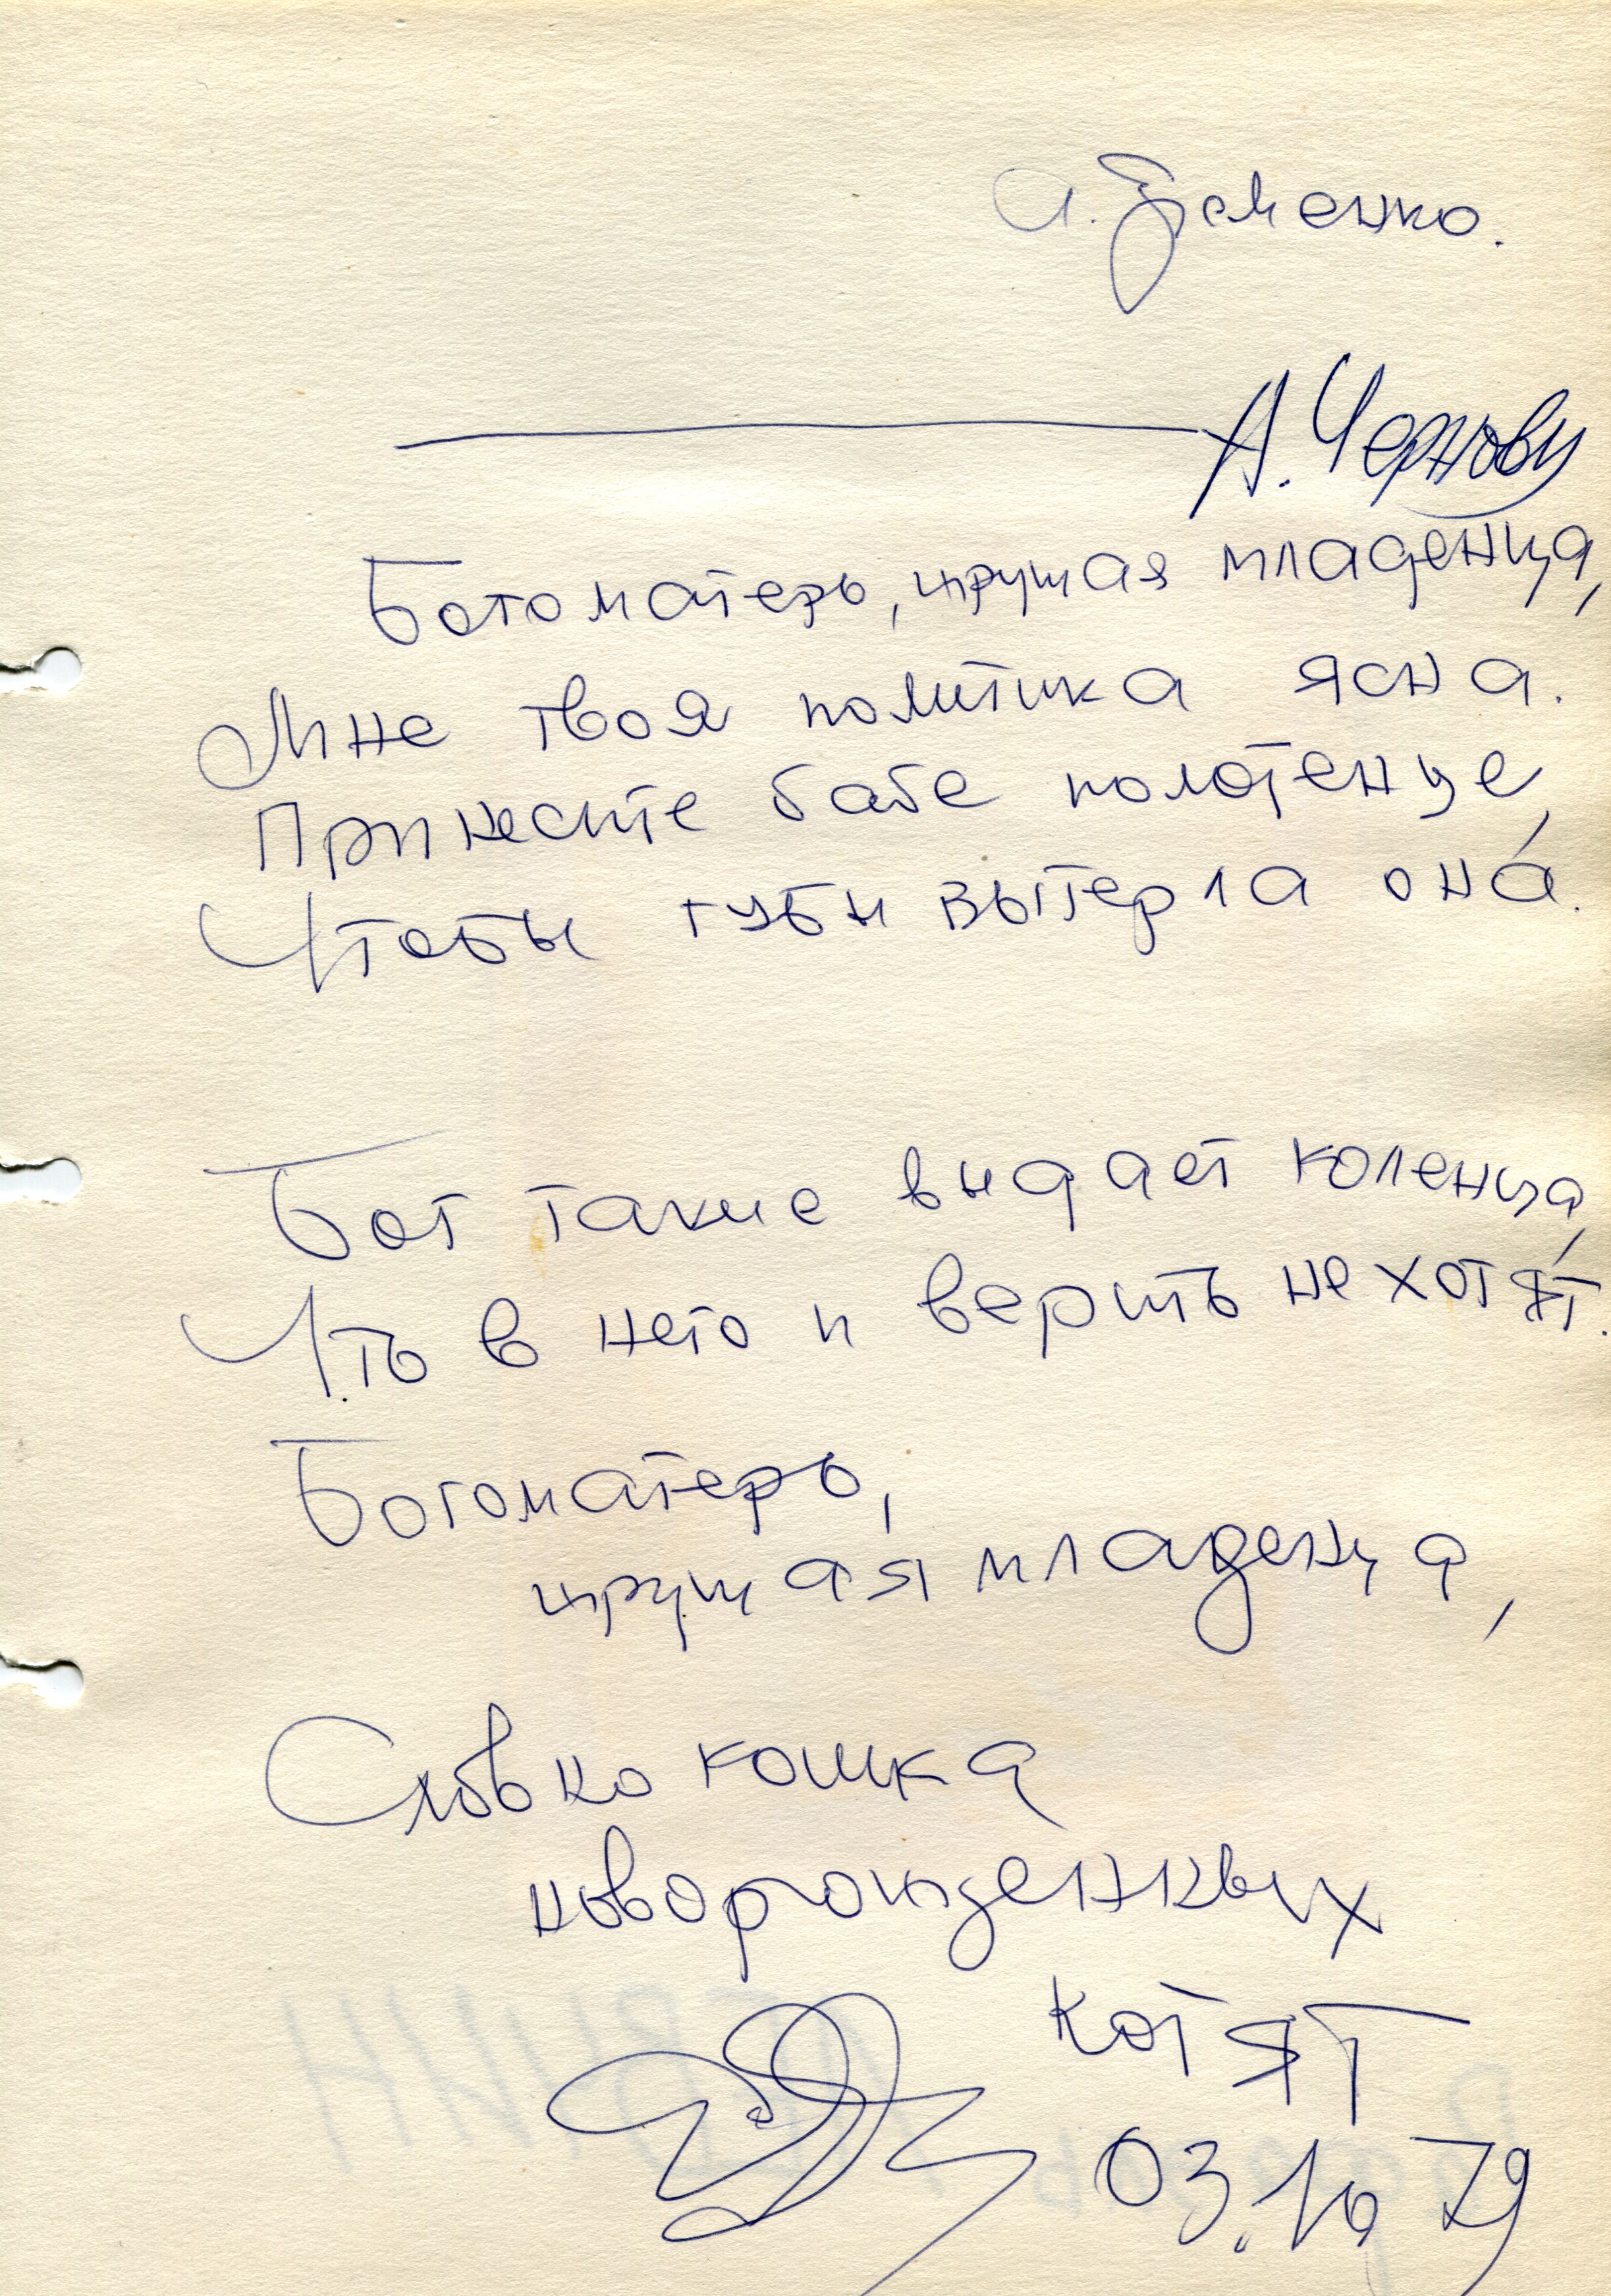 А. Еременко.
А. Чернову
Богоматерь, жрущая младенца,
Мне твоя политика ясна.
Принесите бабе полотенце,
Чтобы губы вытерла она́.
Бог такие выдает коленца,
Что в него и верить не хотя́т.
Богоматерь,
жрущая младенца,
Словно кошка
новорожденных
котят
03.10 79